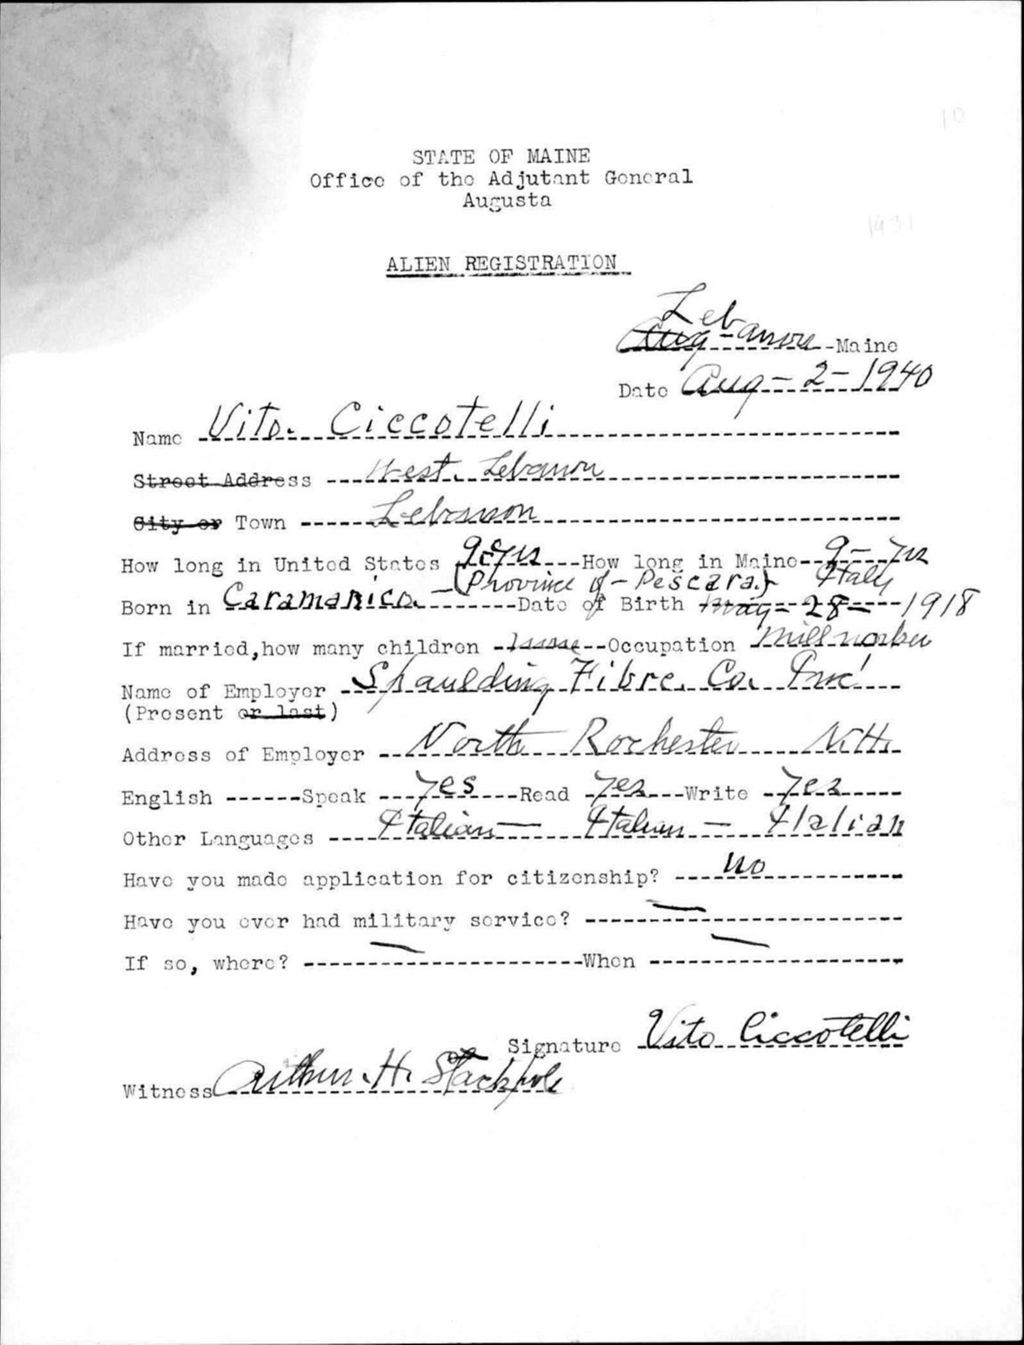 10
STATE OF MAINE
Office of the Adjutant General
Augusta
1931
ALIEN REGISTRATION
Lebanon Maine
Date Aug - 2 - 1940
Name Vito. Ciccotelli
Street Address West Lebanon
City or Town Lebanon
How long in United States 9 yrs How long in Maine 9 - yrs
Born in Caramanico (Province of - Pescara.) Italy Date of Birth May - 28 - 1918
If married, how many children none Occupation Millworker
Name of Employer Spaulding Fibre. Co. Inc
(Present or last)
Address of Employer North Rochester N.H.
English Speak Yes Read Yes Write Yes
Other Languages Italian - Italian - Italian
Have you made application for citizenship? No
Have you ever had military service? —
If so, where? — When —
Signature Vito Ciccotelli
Witness Arthur. H. Stackpole